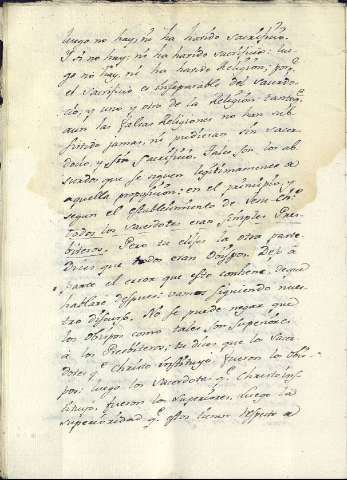 luego no hay, ni ha havido Sacrificio.
Y si no hay, ni ha havido sacrificio: lue-
go no hay, ni ha havido Religion; porq.e
el Sacrificio es inseparable del Sacerdo-
cio, y uno, y otro de la Religion
aun las falsas Religiones no han sub-
sistido jamas, ni pudieran sin sacer-
docio, y sin Sacrificio. Tales son los ab-
surdos, que se siguen legitimamente de
aquella proposicion: en el principio, y
segun el establecimiento de
todos los sacerdotes eran simples Pres-
biteros. Pero tu eliges la otra parte
Dices que todos eran Obispos. Dejo á
parte el error que esto contiene, de que
hablaré despues: vamos siguiendo nues-
tro discurso. No se puede negar que
los Obispos como tales son Superiores
á los Presbiteros: tu dices que los Sacer-
dotes q.e Christo instituyó, fueron los Obis-
pos: luego los Sacerdotes q.e Christo ins-
tituyó, fueron los Superiores, luego la
superioridad q.e estos tienen respecto a